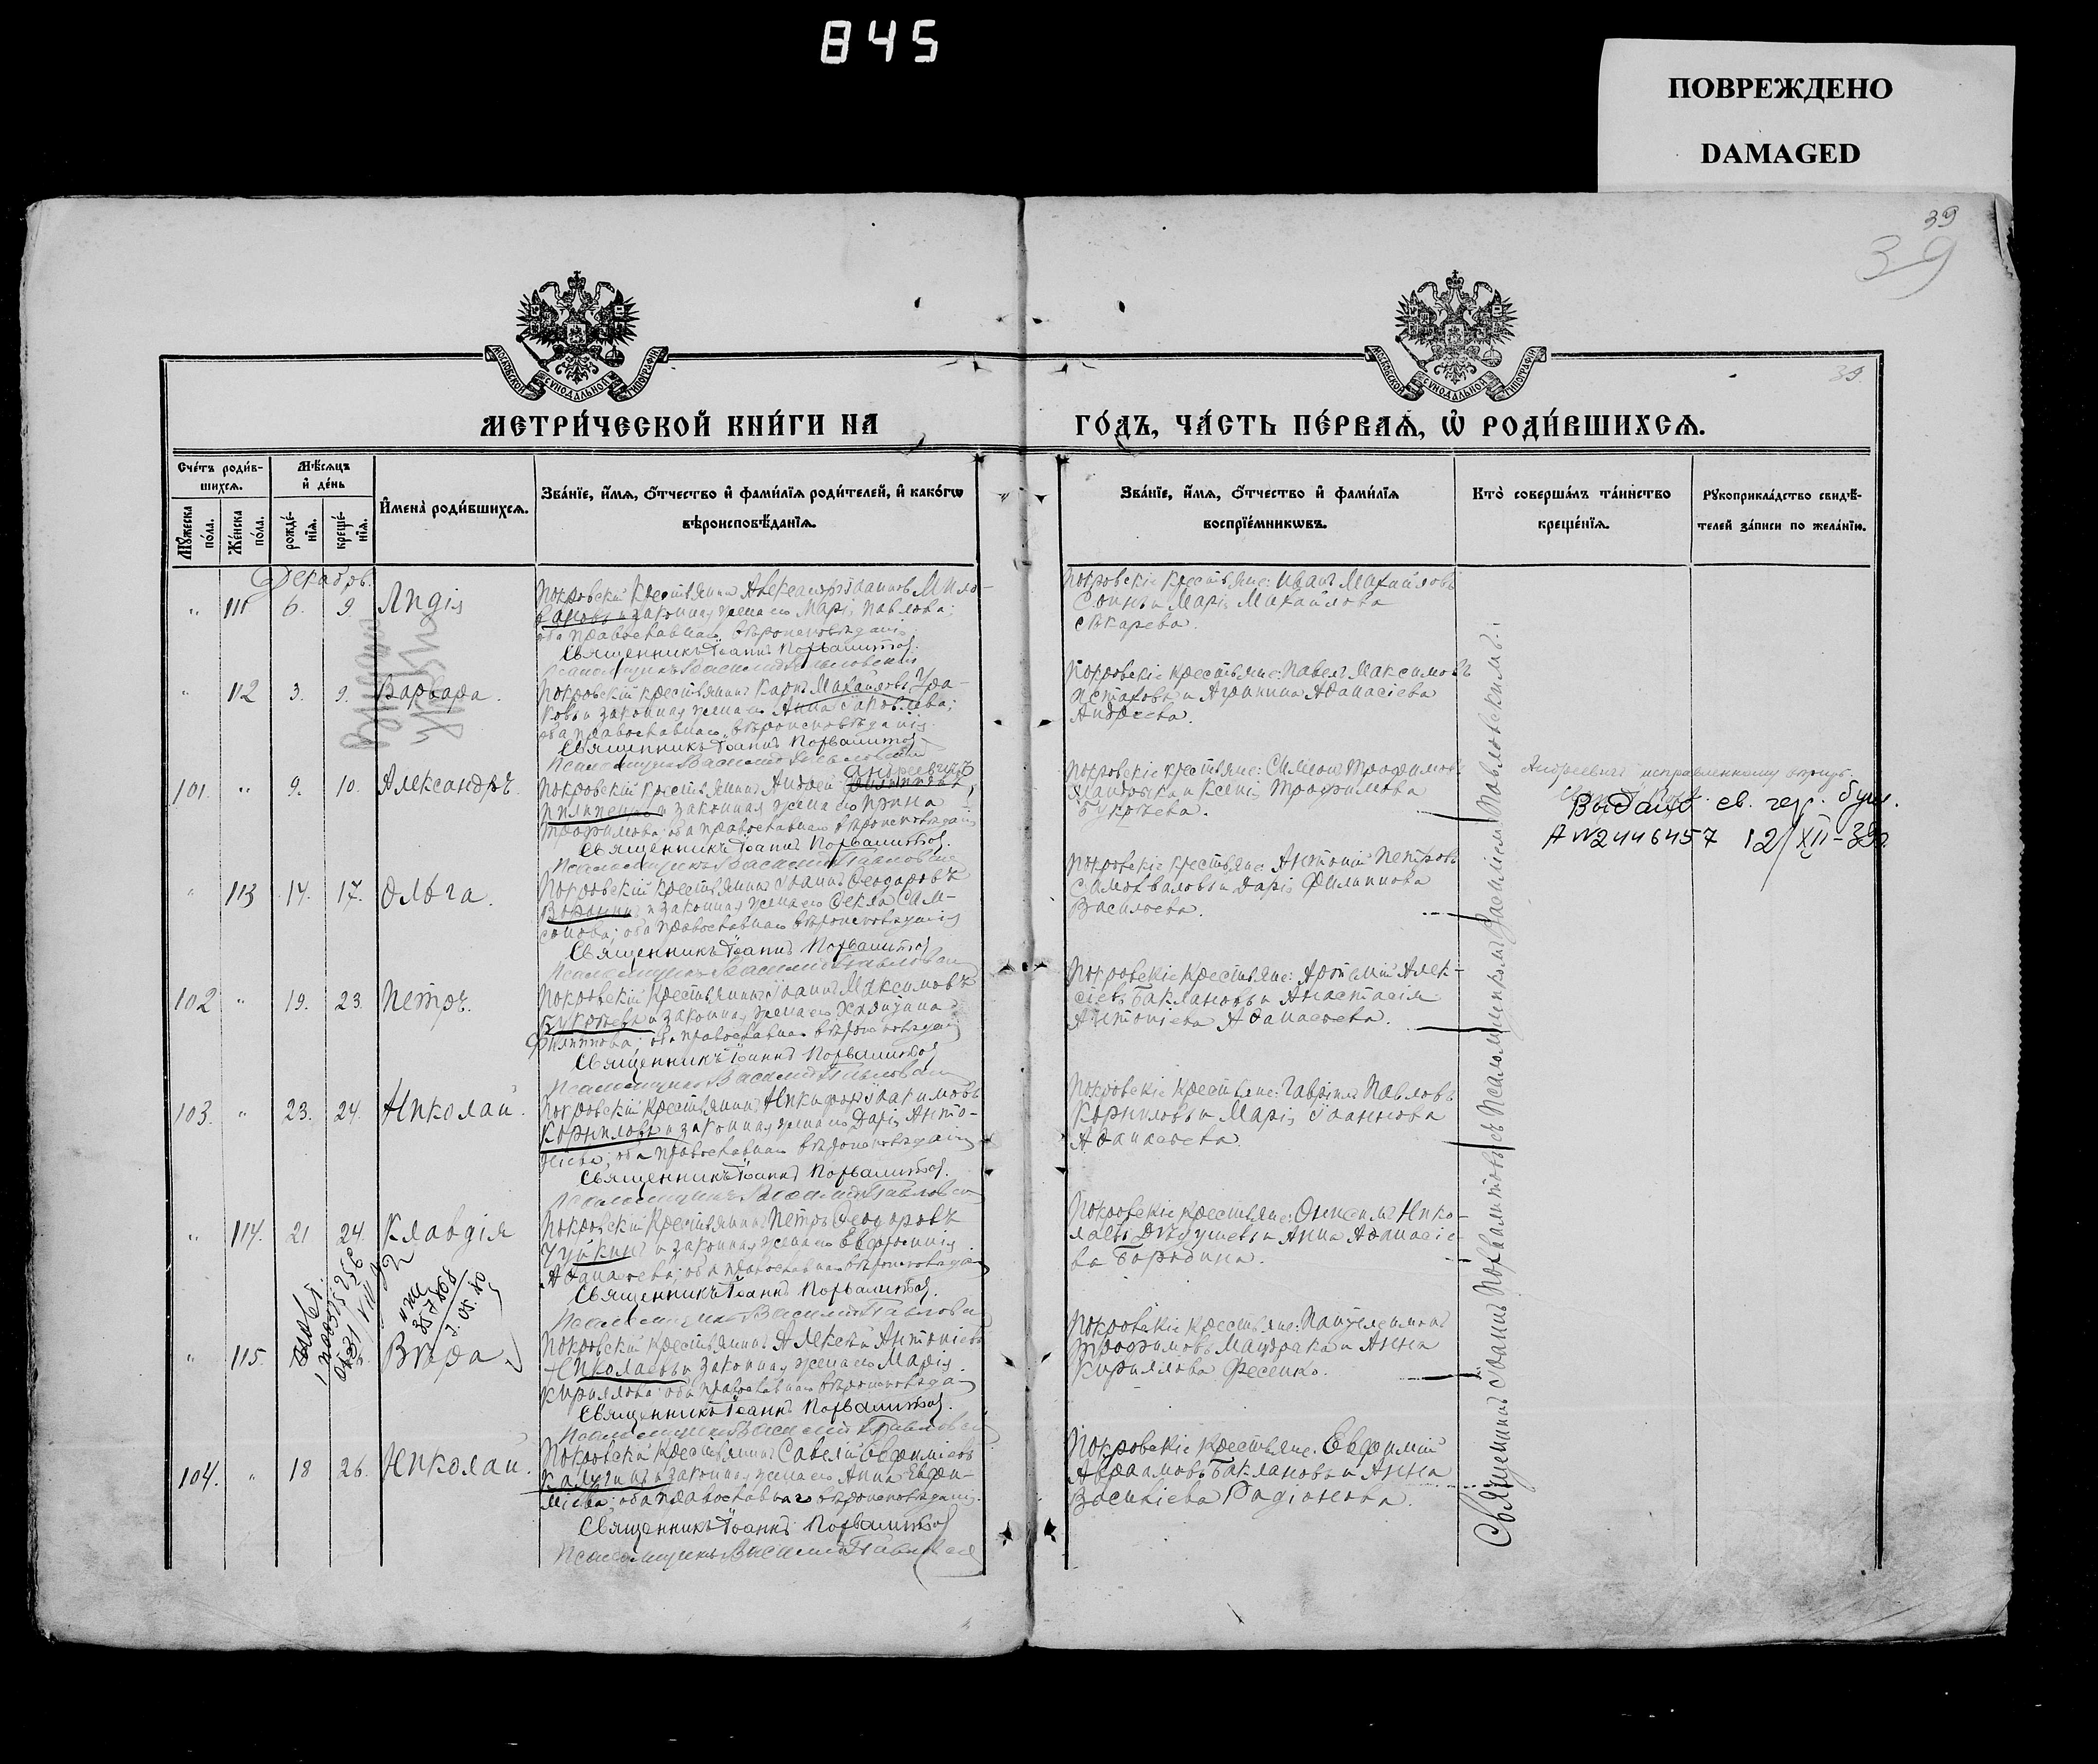 845
ПОВРЕЖДЕНО
DAMAGED
39
39
39.
МОСКОВСКОЙ СѴНОДАЛЬНОЙ ТИПОГРАФІИ
МОСКОВСКОЙ СѴНОДАЛЬНОЙ ТИПОГРАФІИ
МЕТРИ́ЧЕСКОЙ КНИ́ГИ НА
ГО́ДЪ, ЧА́СТЬ ПЕ́РВАѦ, Ѡ҆ РОДИ́ВШИХСѦ.
Сче́тъ роди́в-
шихсѧ.
Мѣ́сѧцъ
и҆ де́нь
Мꙋ́жеска
по́ла.
Же́нска
по́ла.
рожде́-
нїѧ.
креще́-
нїѧ.
И҆мена̀ роди́вшихсѧ.
Зва́нїе, и҆́мѧ, ѻ҆́тчество и҆ фами́лїѧ роди́телей, и҆ како́гѡ
вѣроисповѣ́данїѧ.
Зва́нїе, и҆́мѧ, ѻ҆́тчество и҆ фами́лїѧ
воспрїе́мникѡвъ.
Кто̀ соверша́лъ та́инство
креще́нїѧ.
Рꙋкоприкла́дство свидѣ́-
телей за́писи по жела́нїю.
Декабрь.
" 111 6. 9 Лидія
Покровскій крестьянинъ Александръ Іоанновъ Мило-
вановъ и законная жена его Марія Павлова;
оба православнаго вѣроисповѣданія.
Священникъ Іоаннъ Похвалитовъ.
Псаломщикъ Василій Павловскій
Покровскіе крестьяне: Иванъ Михайловъ
Сонинъ и Марія Михайлова
" 112 3. 9. Варвара.
Покровскій крестьянинъ Карпъ Михайловъ Ура-
ковъ и законная жена его Анна Іаковлева;
оба православнаго вѣроисповѣданія.
Священникъ Іоаннъ Похвалитовъ
Псаломщикъ Василій Павловскій
Покровскіе крестьяне: Павелъ Максимовъ
и Агрипина Аѳанасіева
Андреева.
101. " 9. 10. Александръ.
Андреевичъ
Покровскій крестьянинъ Андрей
Пилипенко и законная жена его Ирина
Трофимова; оба православнаго вѣроисповѣданія
Священникъ Іоаннъ Похвалитовъ.
Псаломщикъ Василій Павловскій
Покровскіе крестьяне: Симеонъ Трофимовъ
и Ксенія Трофимова
Букрѣева.
Андреевичъ исправленному вѣрить
Видано св. чер. булл.
А N2446457 12/XII-39
" 113 14. 17. Ольга.
Покровскій крестьянинъ Іоаннъ Ѳеодоровъ
Воронинъ и законная жена его Ѳекла Сам-
сонова; оба православнаго вѣроисповѣданія
Священникъ Іоаннъ Похвалитовъ
Псаломщикъ Василій Павловскій
Покровскіе крестьяне: Антоній Петровъ
Самохваловъ и Дарія Филиппова
Васильева.
102 " 19. 23. Петръ.
Покровскій крестьянинъ Іоаннъ Максимовъ
Букрѣевъ и законная жена его
Филиппова; оба православнаго вѣроисповѣданія
Священникъ Іоаннъ Похвалитовъ
Псаломщикъ Василій Павловскій
Покровскіе крестьяне: Артемій Алек-
сіевъ Баклановъ и Анастасія
Антоніева Аѳанасьева.
103. " 23. 24. Николай.
Покровскій крестьянинъ Никифоръ Іоакимовъ
Корниловъ и законная жена его Дарія Анто-
ніева; оба православнаго вѣроисповѣданія
Священникъ Іоаннъ Похвалитовъ.
Псаломщикъ Василій Павловскій
Покровскіе крестьяне: Гавріилъ Павловъ
Корниловъ и Марія Іоаннова
Аѳанасьева.
" 114. 21 24. Клавдія
Покровскій крестьянинъ Петръ Ѳеодоровъ
Чуйкинъ и законная жена его Евфросинія
Аѳанасьева; оба православнаго вѣроисповѣданія
Священникъ Іоаннъ Похвалитовъ.
Псаломщикъ Василій Павловскій
Покровскіе крестьяне: Онисимъ Нико-
лаевъ Дѣдушевъ и Анна Аѳанасіе-
ва Бородина.
" 115. Вѣра
Покровскій крестьянинъ Алексій Антоніевъ
Николаевъ и законная жена его Марія
Кириллова; оба православнаго вѣроисповѣданія
Священникъ Іоаннъ Похвалитовъ.
Псаломщикъ Василій Павловскій
Покровскіе крестьяне: Пантелеимонъ
Трофимовъ Мандрака и Анна
Кириллова Фесенко.
104. " 18 26. Николай.
Покровскій крестьянинъ Савелій Евфиміевъ
Калугинъ и законная жена его Анна Евфи-
міева; оба православнаго вѣроисповѣданія.
Священникъ Іоаннъ Похвалитовъ
Псаломщикъ Василій Павловскій
Покровскіе крестьяне: Евфимій
Авраамовъ Баклановъ и Анна
Василіева Радіонова.
Священникъ Іоаннъ Похвалитовъ съ Псаломщикомъ Василіемъ Павловскимъ: